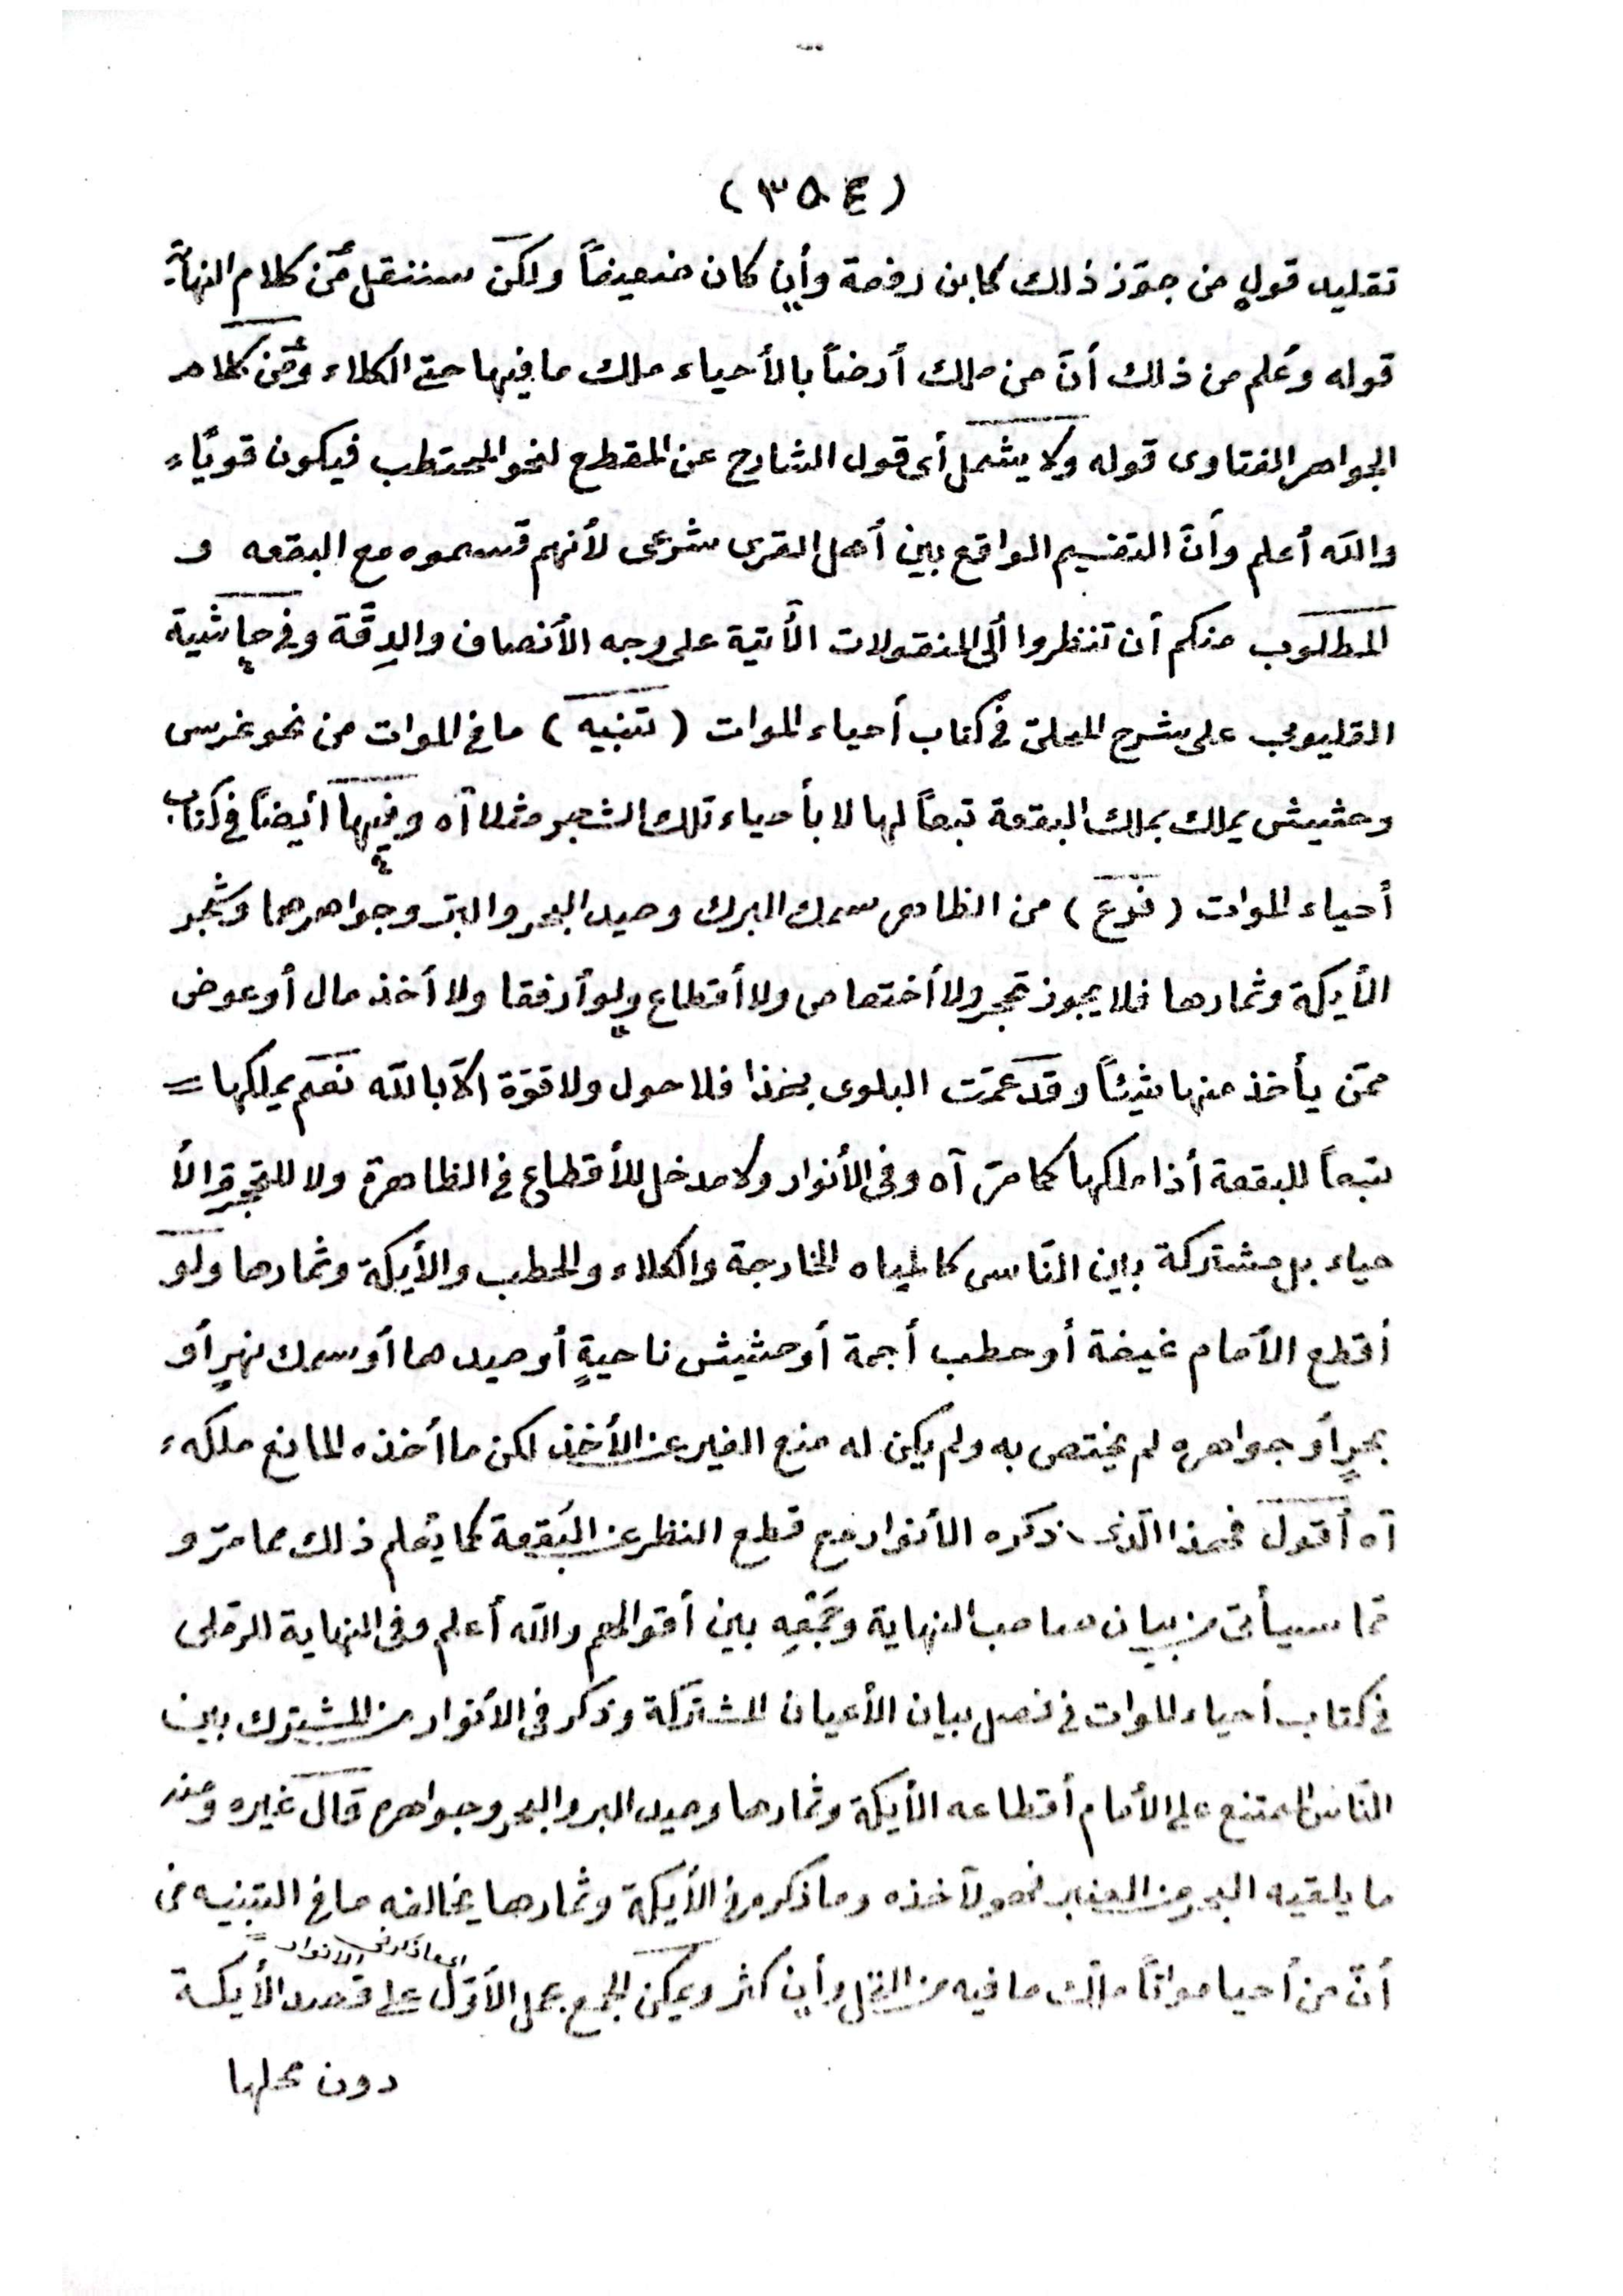 (٣٥٤)
تقليد قولِ من جوّز ذلك كابن رفعة وأن كان ضعيفاً ولكن سننقل من كلام النهاية
قوله وعُلم من ذلك أنّ من ملك أرضاً بالأحياء ملك ما فيها حتى الكلاء ومن كلام
الجواهر الفتاوى قوله ولا يشمل أى قول الشارح عن المقطع لنحو المحتطب فيكون قويًاء
والله أعلم وأنّ التقسيم الواقع بين أهل القرى شرعى لأنهم قسموه مع البقعه و
المطلوب منكم أن تنظروا ألى المنقولات الآتية على وجه الأنصاف والدِقّة وفى حاشية
القليوبى على شرح المحلىّ فى كتاب أحياء الموات (تنبيه) ما فى الموات من نحو غرس
وحشيش يملك بملك البقعة تبعاً لها لا بأحياء تلك الشجر مثلا آه وفيها أيضاً فى كتاب
أحياء الموات (فرع) من الظاهر سمك البرك وصيد البحر والبرّ وجواهرهما وشجر
الأيكة وثمارها فلا يجوز تحجر ولا أختصاص ولا أقطاع ولو أرفقا ولا أخذ مال أو عوض
ممّن يأخذ منها شيئاً وقد عمّت البلوى بهذا فلا حول ولا قوّة الاّ بالله نعم يملكها =
تبعاً للبقعة أذا ملكها كما مرّ آه وفى الأنوار ولا مدخل للأقطاع فى الظاهرة ولا للتحجر والأ
حياء بل مشتركة بين النّاس كالمياه الخارجة والكلاء والحطب والأيكة وثمارها ولو
أقطع الأمام غيضة أو حطب أجمة أو حشيش ناحيةٍ أو صيدهما أو سمك نهرٍ أو
بحرٍ أو جواهره لم يختص به ولم يكن له منع الغير عن الأخذ لكن ما أخذه المانع ملكه،
آه أقول فهذا الّذى ذكره الأنوار مع قطع النظر عن البُقعة كما يُعلم ذلك مما مرّ و
ممّا سيأتى من بيان صاحب النهاية وجَمْعِه بين أقوالهم والله أعلم وفى النهاية الرملى
فى كتاب أحياء الموات فى فصل بيان الأعيان المشتركة وذكر فى الأنوار من المشترك بين
النّاس الممتنع على الأمام أقطاعه الأيكة وثمارها وصيد البر والبحر وجواهره قال غيره ومنه
ما يلقيه البحر من العنبر فهو لآخذه وما ذكر من الأيكة وثمارها يخالفه ما فى التنبيه من
أنّ من أحيا مواتاً ملك ما فيه من النخل وأن كثر ويمكن الجمع بحمل الأوّل على قصد الأيكة
دون محلها